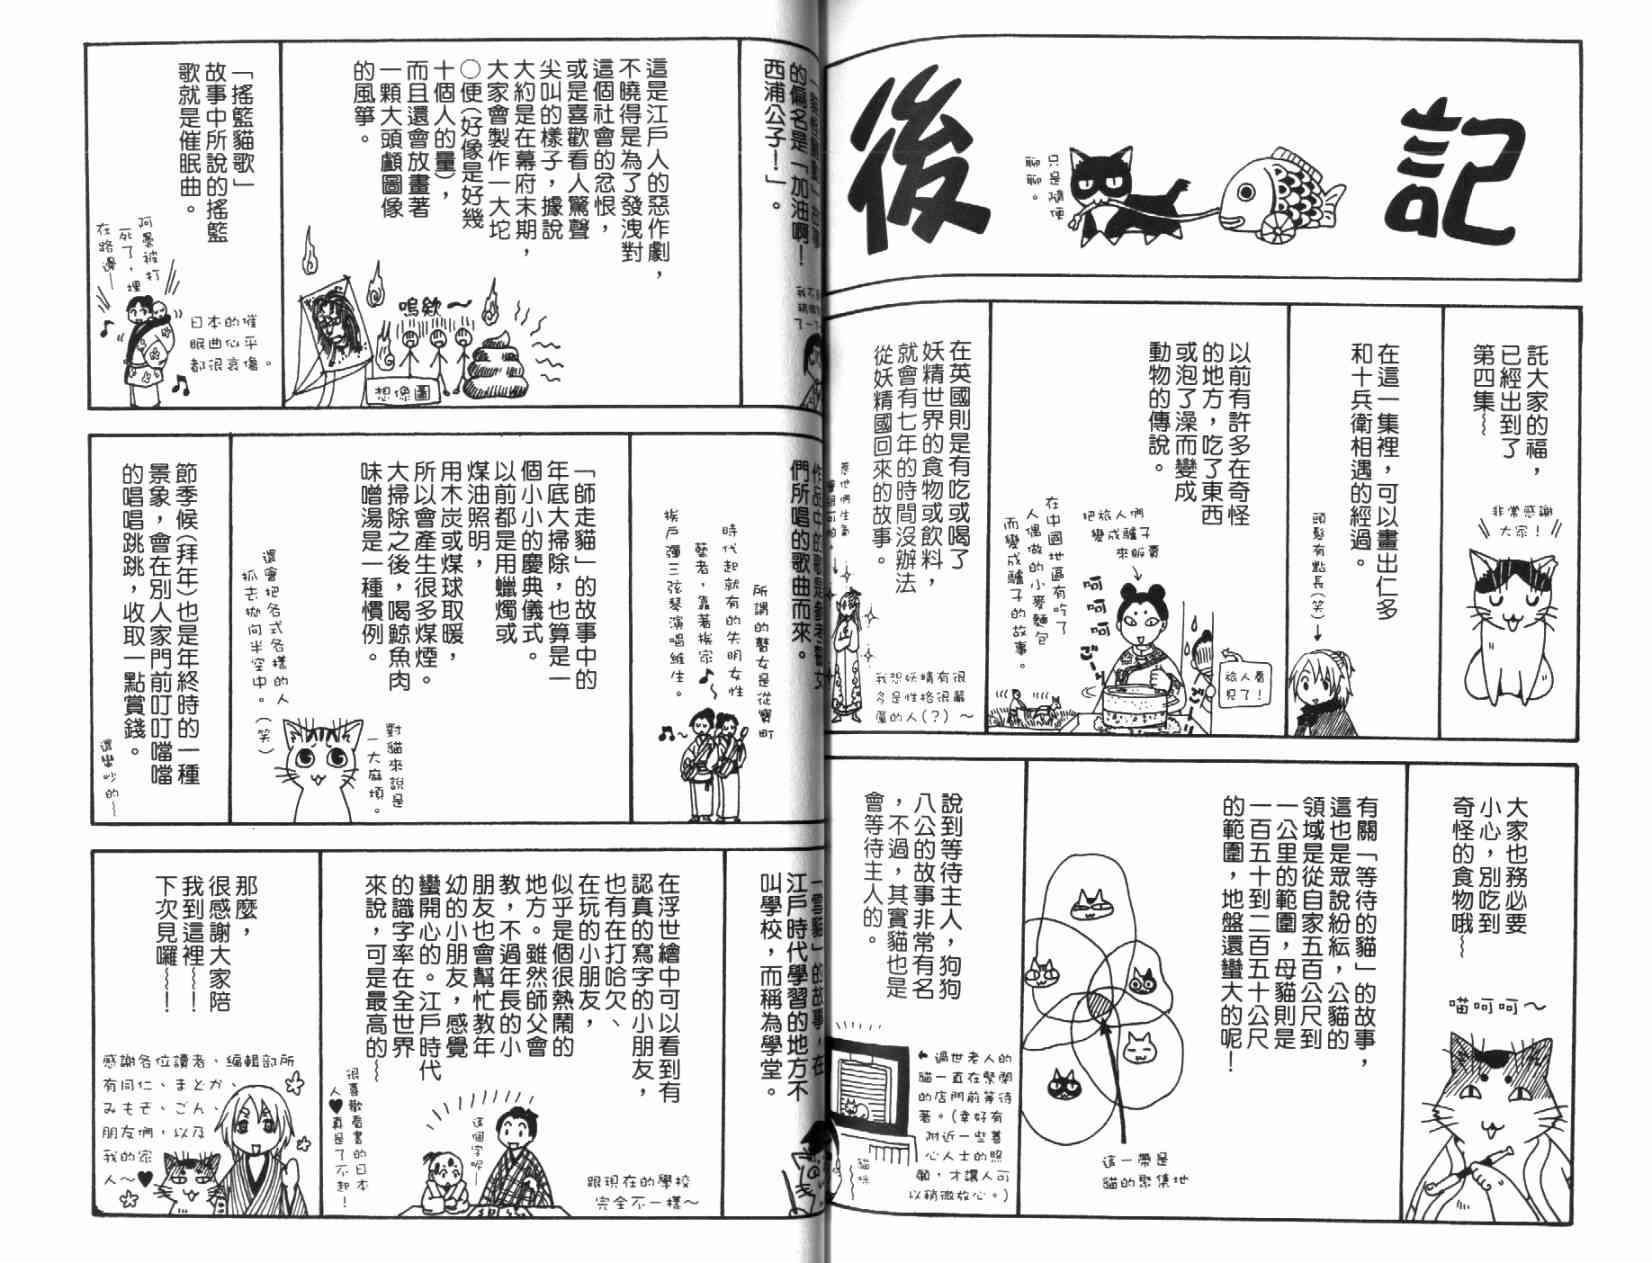 後記
只是隨便
聊聊。
託大家的福，
已經出到了
第四集～
非常感謝
大家！
在這一集裡，可以畫出仁多
和十兵衛相遇的經過。
頭髮有點長（笑）
以前有許多在奇怪
的地方，吃了東西
或泡了澡而變成
動物的傳說。
把旅人們
變成驢子
來販賣
呵呵呵
ご～
旅人看
見了！
在中國地區有吃了
人偶做的小麥麵包
而變成驢子的故事。
在英國則是有吃或喝了
妖精世界的食物或飲料，
就會有七年的時間沒辦法
從妖精國回來的故事。
我想妖精有很
多是性格很嚴
厲的人（？）～
大家也務必要
小心，別吃到
奇怪的食物哦～
喵呵呵～
有關「等待的貓」的故事，
這也是眾說紛紜，公貓的
領域是從自家五百公尺到
一公里的範圍，母貓則是
一百五十到二百五十公尺
的範圍，地盤還蠻大的呢！
這一帶是
貓的聚集地
說到等待主人，狗狗
八公的故事非常有名
，不過，其實貓也是
會等待主人的。
過世老人的
貓一直在緊閉
的店門前等待
著。（幸好有
附近一些善
心人士的照
顧，才讓人可
以稍微放心。）
的偏名是「加油啊！
西浦公子！」。
這是江戶人的惡作劇，
不曉得是為了發洩對
這個社會的忿恨，
或是喜歡看人驚聲
尖叫的樣子，據說
大約是在幕府末期，
大家會製作一大坨
○便（好像是好幾
十個人的量），
而且還會放畫著
一顆大頭顱圖像
的風箏。
嗚欸～
想像圖
「搖籃貓歌」
故事中所說的搖籃
歌就是催眠曲。
阿墨被打
死了，埋
在路邊—
日本的催
眠曲似乎
都很哀傷。
們所唱的歌曲而來。
所謂的瞽女是從寶町
時代起就有的失明女性
藝者，靠著挨家
挨戶彈三弦琴演唱維生。
「師走貓」的故事中的
年底大掃除，也算是一
個小小的慶典儀式。
以前都是用蠟燭或
煤油照明，
用木炭或煤球取暖，
所以會產生很多煤煙。
大掃除之後，喝鯨魚肉
味噌湯是一種慣例。
對貓來說是
一大麻煩。
還會把各式各樣的人
抓去拋向半空中。（笑）
節季候（拜年）也是年終時的一種
景象，會在別人家門前叮叮噹噹
的唱唱跳跳，收取一點賞錢。
還蠻吵的～
「雪貓」的故事，在
江戶時代學習的地方不
叫學校，而稱為學堂。
在浮世繪中可以看到有
認真的寫字的小朋友，
也有在打哈欠、
在玩的小朋友，
似乎是個很熱鬧的
地方。雖然師父會
教，不過年長的小
朋友也會幫忙教年
幼的小朋友，感覺
蠻開心的。江戶時代
的識字率在全世界
來說，可是最高的～
這個字呢—
跟現在的學校
完全不一樣～
很喜歡看書的日本
人♥真是了不起！
那麼，
很感謝大家陪
我到這裡～！
下次見囉～！
感謝各位讀者、編輯部所
有同仁、まとか、
みもぞ、ごん、
朋友們，以及
我的家
人～♥